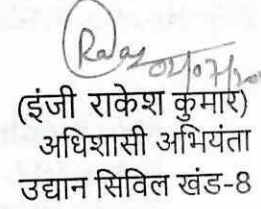 (इंजी राकेश कुमार)
अधिशासी अभियंता
उद्यान सिविल खंड-8